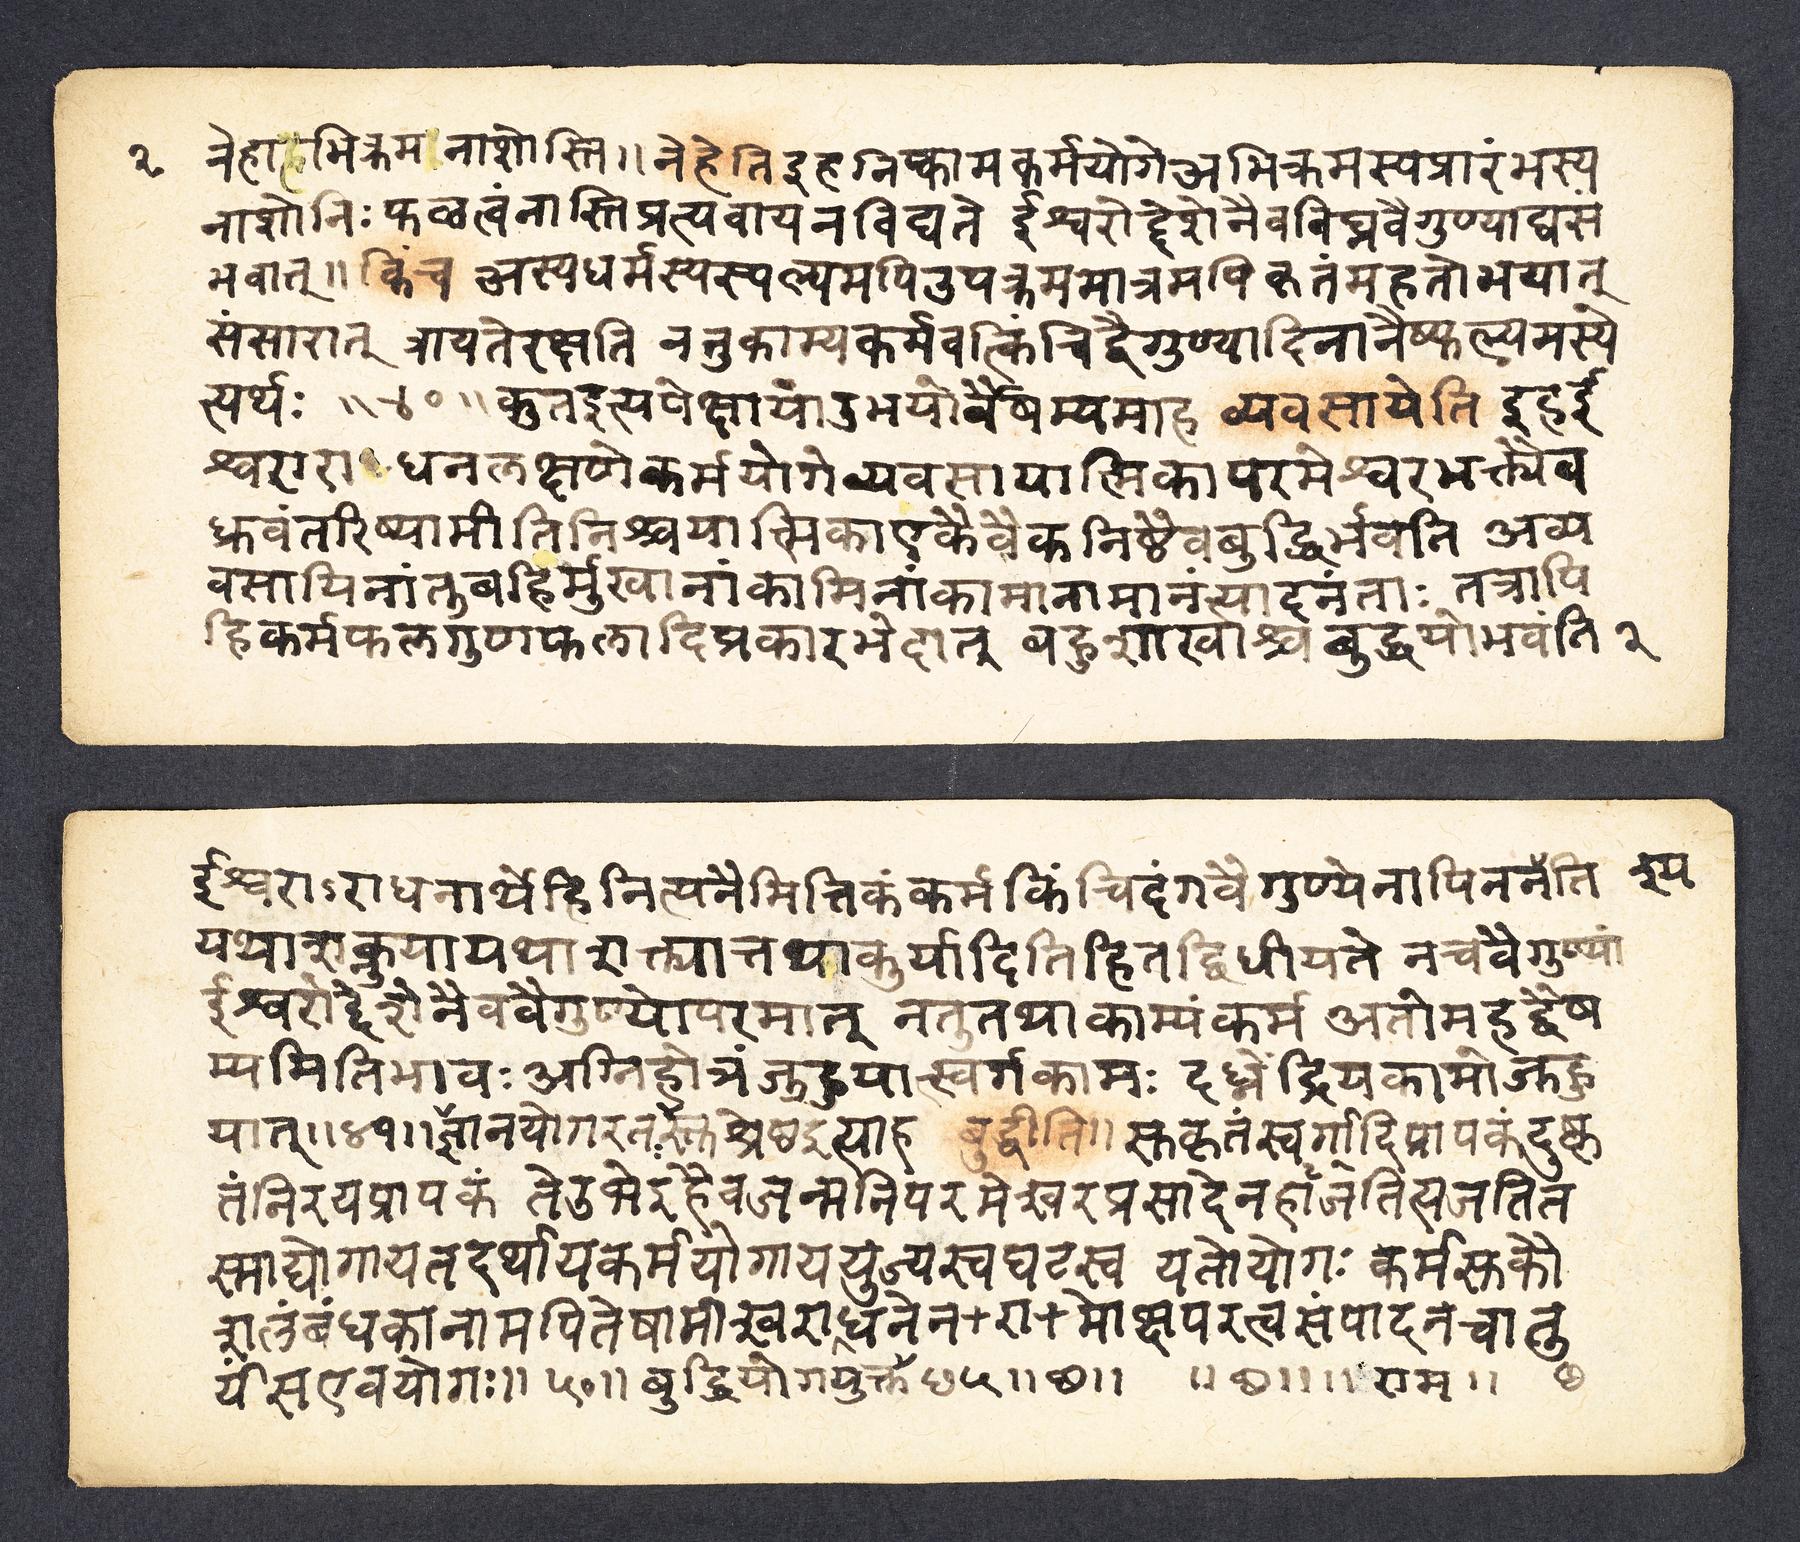 २ नेहाभिक्रमनाशोस्ति॥ नेहेतिइहनिष्कामकर्मयोगेअभिक्रमस्यप्रारंभस्य
नाशोनिःफळत्वंनास्तिप्रत्यवायनविद्यते ईश्वरोद्देशेनैवविघ्नवैगुण्याद्यसं
भवात्॥ किंच अस्यधर्मस्यस्वल्पमपिउपक्रममात्रमपिकृतंमहतोभयात्
संसारात् त्रायतेरक्षति ननुकाम्यकर्मवत्किंचिद्वैगुण्यादिनानैष्फल्यमस्ये
त्यर्थः ॥४०॥ कुतइत्यपेक्षायांउभयोर्वैषम्यमाह व्यवसायेति इहई
श्वरारा धनलक्षणेकर्मयोगेव्यवसायात्मिकापरमेश्वरभक्त्यैव
ध्रुवंतरिष्यामीतिनिश्चयात्मिकाएकैवैकनिष्ठैवबुद्धिर्भवति अव्य
वसायिनांतुबहिर्मुखानांकामिनांकामानामानंत्यादनंताः तत्रापि
हिकर्मफलगुणफलादिप्रकारभेदात् बहुशाखाश्चबुद्धयोभवंति २
ईश्वराऽराधनार्थेहिनित्यनैमित्तिकंकर्मकिंचिदंगवैगुण्येनापिननँति
यथाशक्नुयायथाशक्त्यात्तथाकुर्यादितिहितद्विधीयते नचवैगुण्यां
ईश्वरोद्देशेनैववैगुण्योपरमात् नतुतथाकाम्यंकर्म अतोमहद्वैष
म्यमितिभावः अग्निहोत्रंजुहुयात्स्वर्गकामः दध्नेंद्रियकामोजुहु
यात्॥४१॥ ज्ञानयोगरतःस्तुश्रेष्ठइत्याह बुद्धीति॥ सुकृतंस्वर्गादिप्रापकंदुष्कृ
तंनिरयप्रापकं तेउभेइहैवजन्मनिपरमेश्वरप्रसादेनहाँजेतित्यजतित
स्माद्योगायतदर्थायकर्मयोगाययुंज्यस्वघटस्व यतोयोगः कर्मसुकौ
शलंबंधकानामपितेषामीश्वराधनेन+रा+मोक्षपरत्वसंपादनचातु
र्यंसएवयोगः॥ ५०॥ बुद्धियोगयुक्तँ ७५॥छ॥ ॥छ॥॥ राम॥ छ